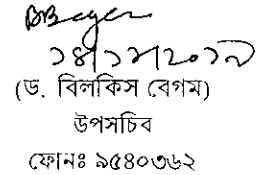 ১৪/১২/২০১৭
(ড. বিলকিস বেগম)
উপসচিব
ফোনঃ ৯৫৪০৩৬২